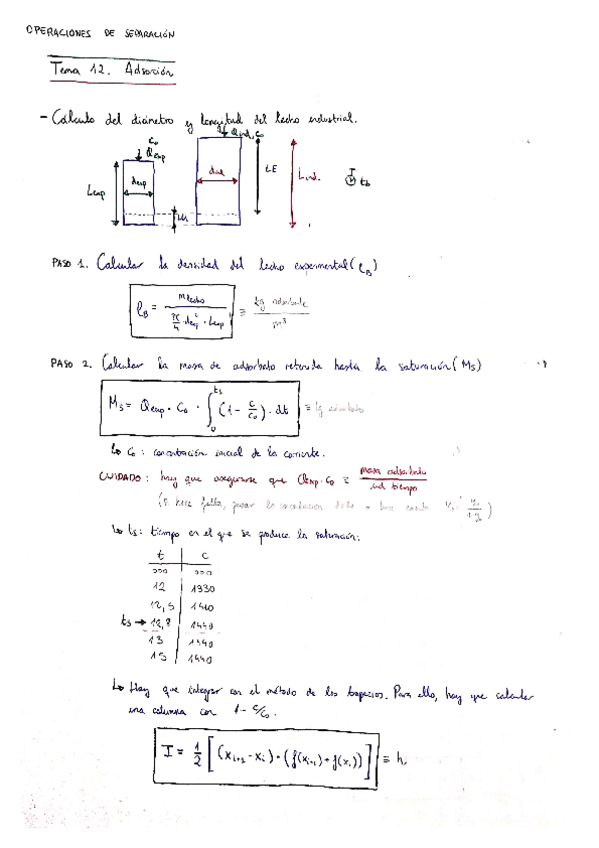 OPERACIONES DE SEPARACIÓN
Tema 12. Adsorción
- Cálculo del diámetro y longitud del lecho industrial.
C₀
Qexp
Qind, C₀
Lexp
dexp
dind
LE
Lind.
tb
PASO 1. Calcular la densidad del lecho experimental (ρB)
ρB = mlecho / (π/4 · dexp² · Lexp) ≡ kg adsorbente / m³
PASO 2. Calcular la masa de adsorbato retenida hasta la saturación (Ms)
Ms = Qexp · C₀ · ∫₀^ts (1 - c/c₀) · dt ≡ kg adsorbato
↳ C₀: concentración inicial de la corriente.
CUIDADO: hay que asegurarse que Qexp · C₀ ≡ masa adsorbato / ud. tiempo
(si hace falta, pasar la concentración
↳ ts: tiempo en el que se produce la saturación:
t | c
ooo | ooo
12 | 1330
12,5 | 1410
ts → 12,8 | 1440
13 | 1440
15 | 1440
↳ Hay que integrar con el método de los trapecios. Para ello, hay que calcular
una columna con 1 - c/c₀.
I = 1/2 [(xᵢ₊₁ - xᵢ) · (f(xᵢ₊₁) + f(xᵢ))] ≡ h.